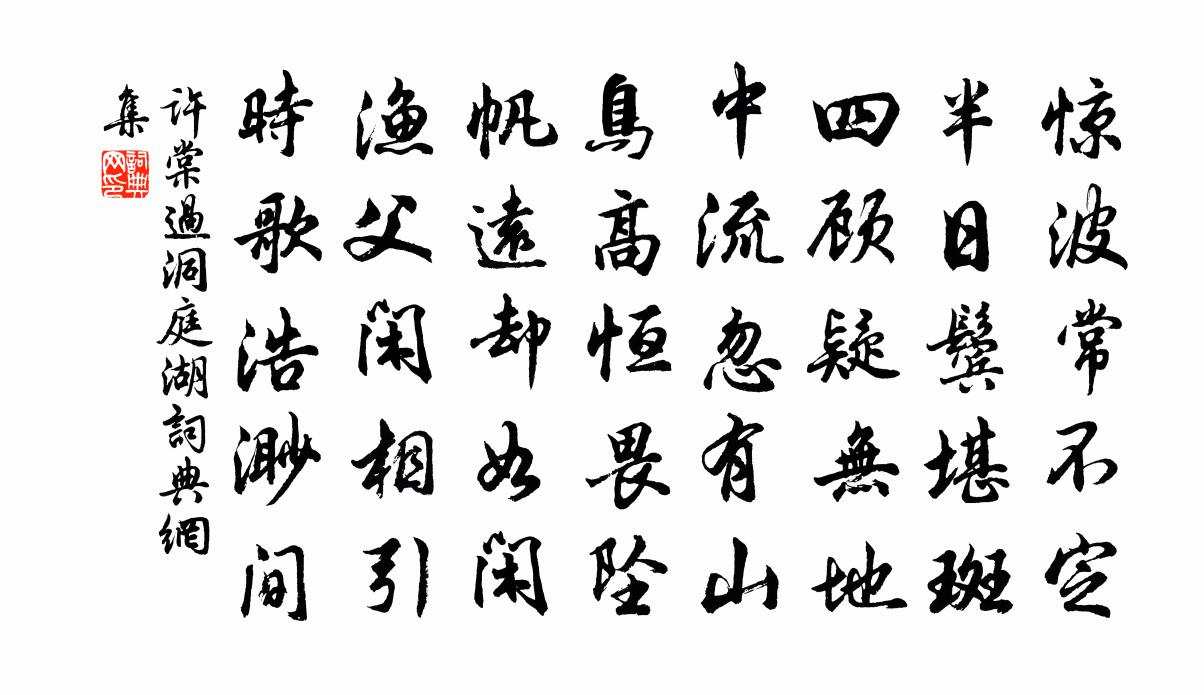 惊波常不定
半日鬓堪斑
四顾疑無地
中流忽有山
鳥高恒畏坠
帆遠却如闲
渔父闲相引
時歌浩渺间
许棠過洞庭湖詞典網
集
詞典网印